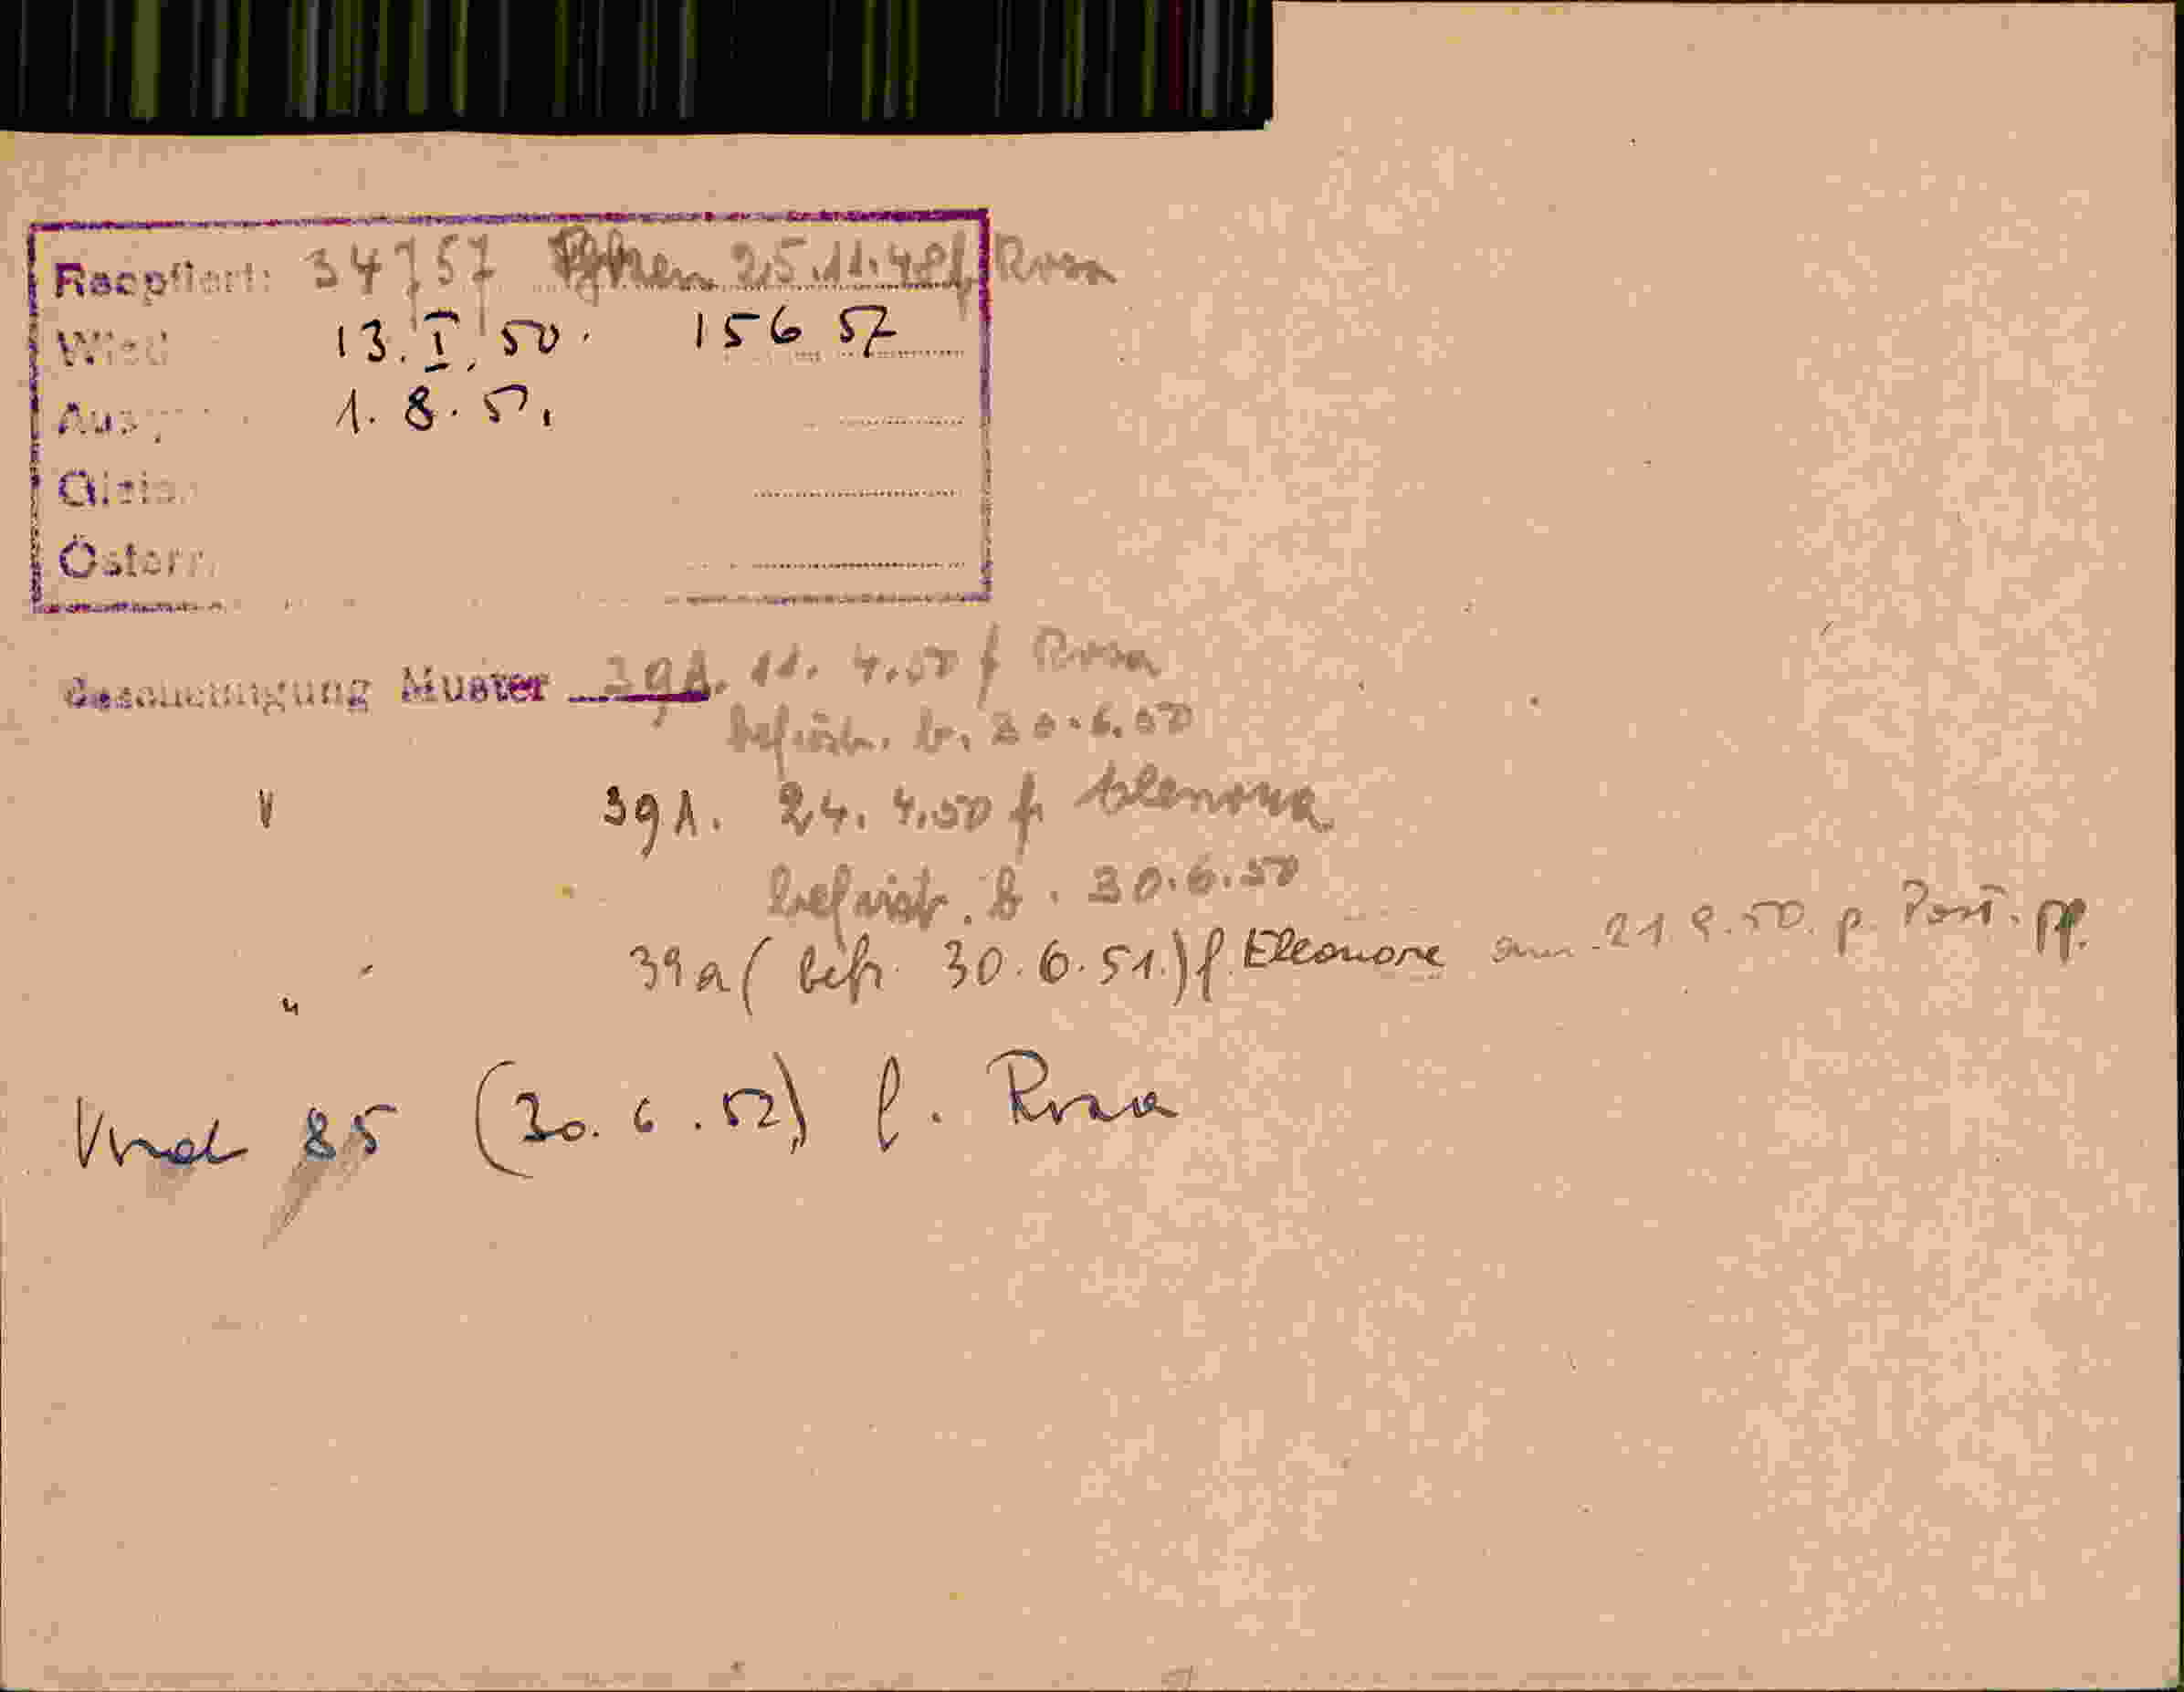 Reepfiert: 34757 25.11.48 f. Rosa
Wied 13. I. 50. 156 57
1. 8. 51
Österr.
Bescheinigung Muster 39A. 11. 4.50 f Rosa
befrist. b. 30.6.50
39A. 24. 4.50 f.
befrist. b. 30.6.50
" 39a (befr. 30.6.51.) f. Eleonore am 21.9.50. p. Post. pp.
85 (30.6.52) f. Rosa